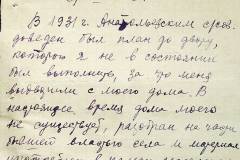 В 1931 г. Анатольевским с/сов.
доведен был план до двору,
которого я не в состоянии
был выполнить, за что меня
выдворили с моего дома. В
настоящее время дома моего
не существует, разобран на части
нашего села и материал